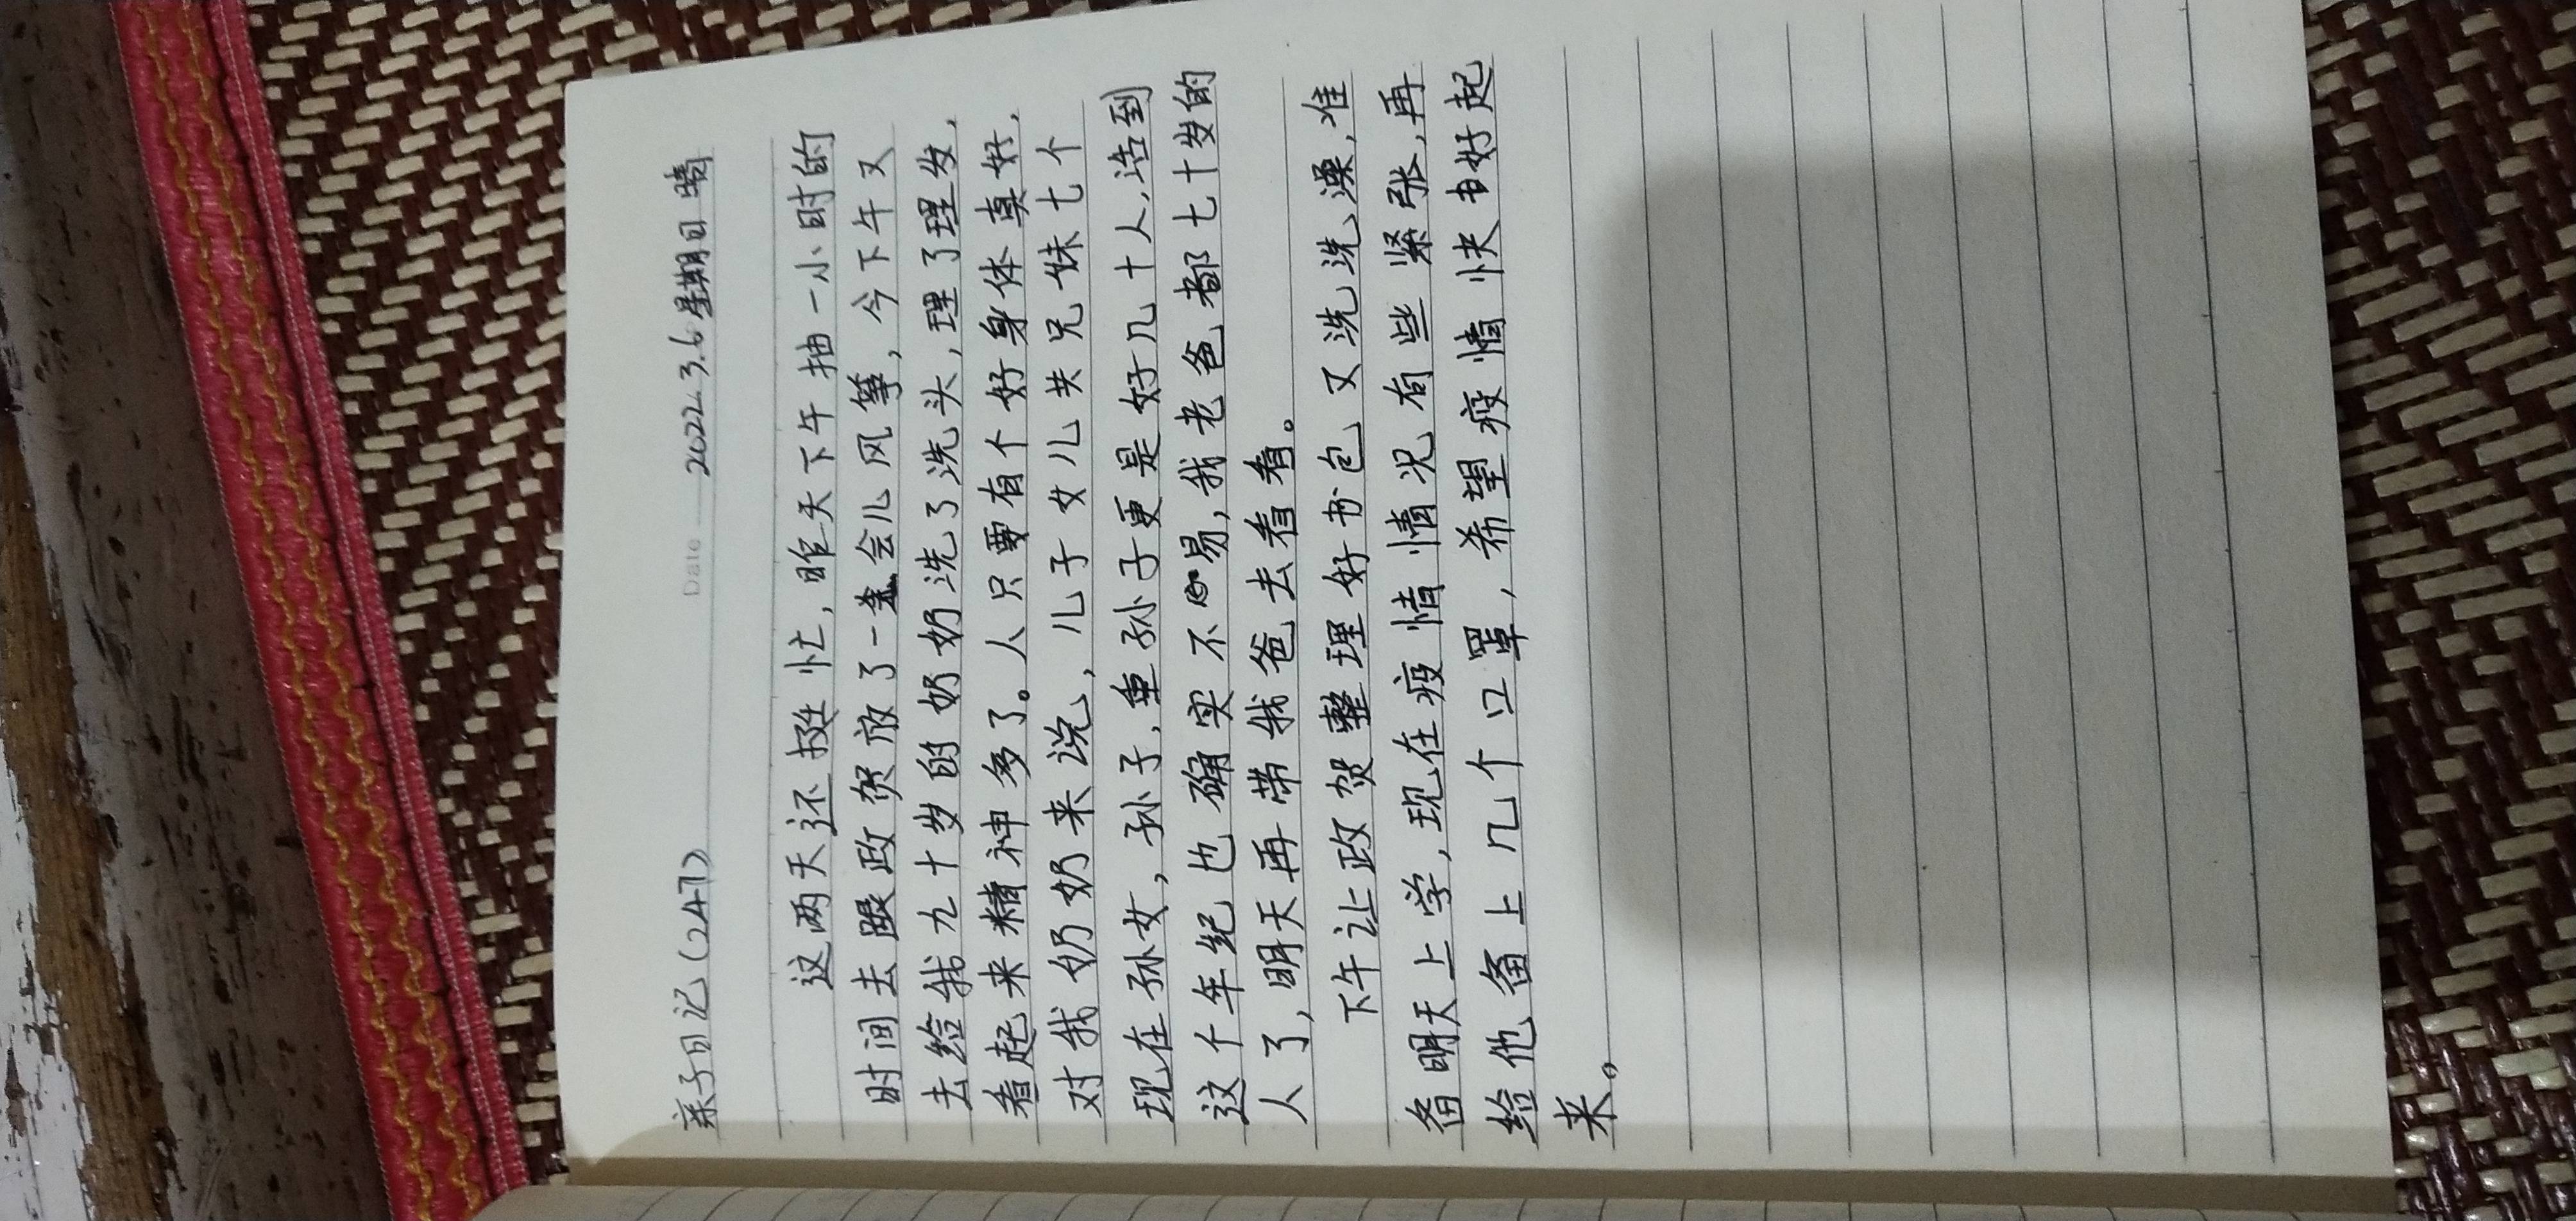 亲子日记(247)
Date 2022.3.6 星期日 晴
这两天还挺忙,昨天下午抽一小时的
时间去跟政贺放了一会儿风筝,今下午又
去给我九十岁的奶奶洗了洗头,理了理发,
看起来精神多了。人只要有个好身体真好,
对我奶奶来说,儿子女儿共兄妹七个
现在孙女,孙子,重孙子更是好几十人,活到
这个年纪也确实不易,我老爸都七十岁的
人了,明天再带我爸去看看。
下午让政贺整理好书包又洗洗澡,准
备明天上学,现在疫情情况有些紧张,再
给他备上几个口罩,希望疫情快快好起
来。